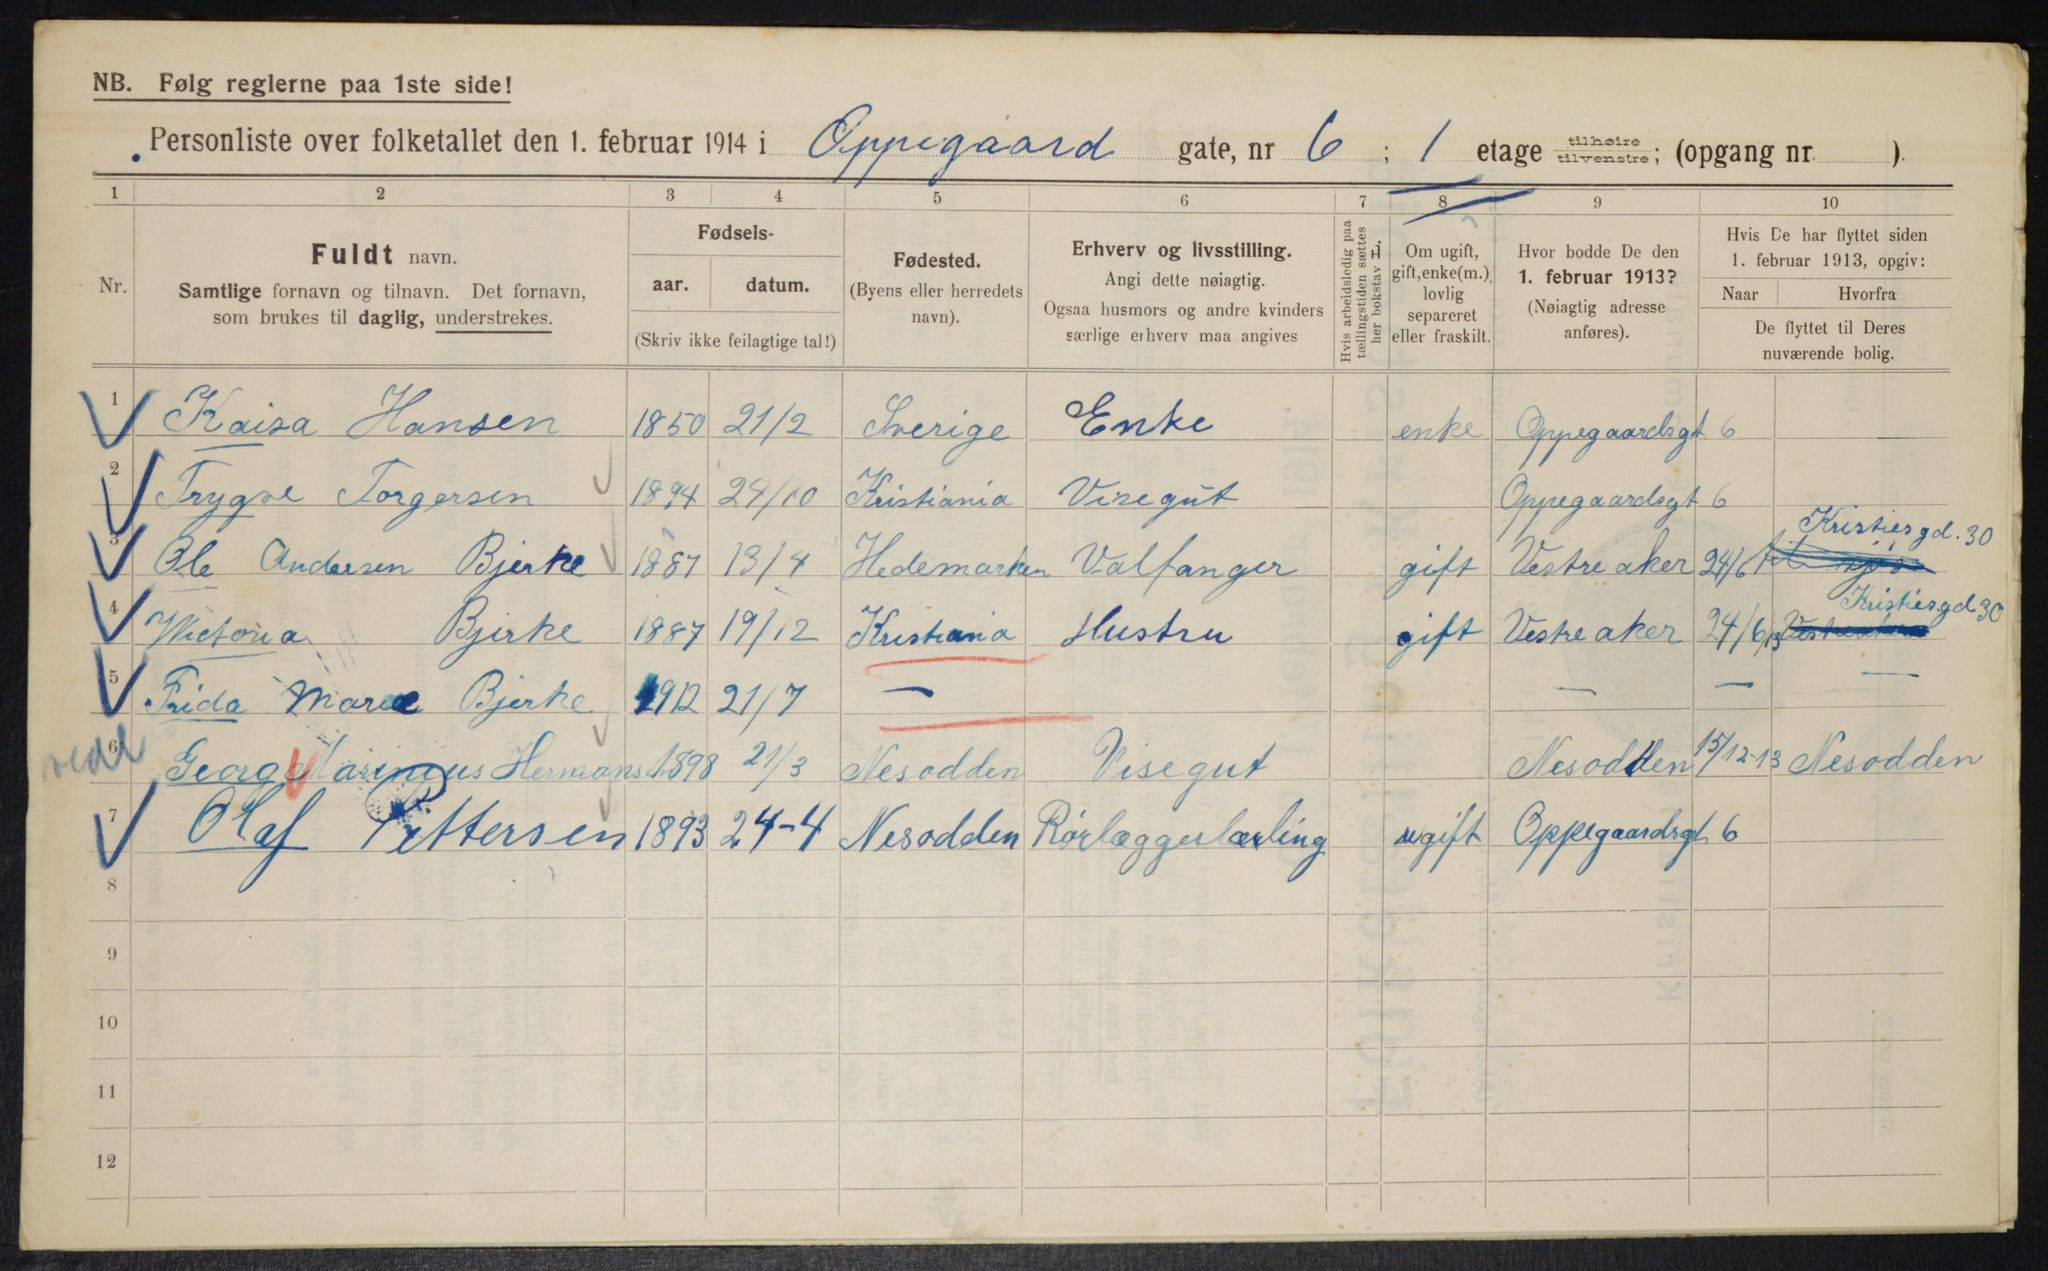 NB. Følg reglerne paa 1ste side!
Personliste over folketallet den 1. februar 1914 i Oppegaard gate, nr 6 ; 1 etage tilhøire tilvenstre; (opgang nr. ).
1 2 3 4 5 6 7 8 9 10
Nr.
Fuldt navn.
Samtlige fornavn og tilnavn. Det fornavn,
som brukes til daglig, understrekes.
Fødsels-
aar. datum.
(Skriv ikke feilagtige tal!)
Fødested.
(Byens eller herredets
navn).
Erhverv og livsstilling.
Angi dette nøiagtig.
Ogsaa husmors og andre kvinders
særlige erhverv maa angives
Hvis arbeidsledig paa
tællingstiden sættes
her bokstav L.
Om ugift,
gift, enke(m.),
lovlig
separeret
eller fraskilt.
Hvor bodde De den
1. februar 1913?
(Nøiagtig adresse
anføres).
Hvis De har flyttet siden
1. februar 1913, opgiv:
Naar Hvorfra
De flyttet til Deres
nuværende bolig.
1 Kaisa Hansen 1850 21/2 Sverige Enke enke Oppegaardsgt 6
2 Trygve Torgersen 1894 24/10 Kristiania Visegut Oppegaardsgt 6
Kristiesgd. 30
3 Ole Andersen Bjerke 1887 13/4 Hedemarken Valfanger gift Vestre aker 24/6
Kristiesgd 30
4 Victoria Bjerke 1887 19/12 Kristiania Hustru gift Vestre aker 24/6 13 Vestreaker
5 Frida Marie Bjerke 1912 21/7 — — — —
6 Georg Marinius Hermans 1898 21/3 Nesodden Visegut Nesodden 15/12-13 Nesodden
7 Olaf Pettersen 1893 24-4 Nesodden Rørlæggerlærling ugift Oppegaardsgt 6
8
9
10
11
12